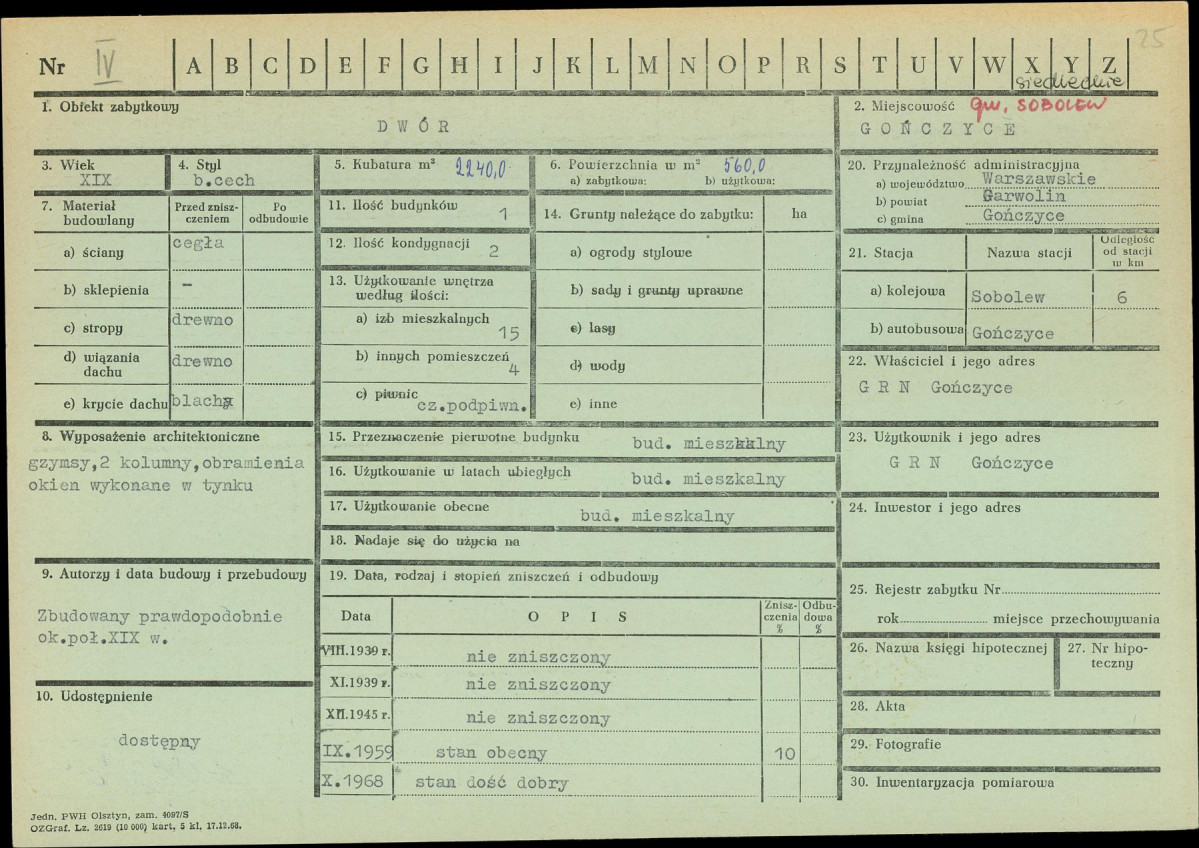 25
Nr IV A B C D E F G H I J K L M N O P R S T U V W X Y Z
siedleckie
1. Obiekt zabytkowy
DWÓR
2. Miejscowość gm. SOBOLEW
GOŃCZYCE
3. Wiek
XIX
4. Styl
b.cech
5. Kubatura m³ 2240,0
6. Powierzchnia w m² 560,0
a) zabytkowa: b) użytkowa:
20. Przynależność administracyjna
a) województwo Warszawskie
b) powiat Garwolin
c) gmina Gończyce
7. Materiał budowlany
Przed zniszczeniem
Po odbudowie
a) ściany cegła
b) sklepienia –
c) stropy drewno
d) wiązania dachu drewno
e) krycie dachu blacha
11. Ilość budynków 1
12. Ilość kondygnacji 2
13. Użytkowanie wnętrza
według ilości:
a) izb mieszkalnych 15
b) innych pomieszczeń 4
c) piwnic cz.podpiwn.
14. Grunty należące do zabytku: ha
a) ogrody stylowe
b) sady i grunty uprawne
c) lasy
d) wody
e) inne
21. Stacja Nazwa stacji Odległość od stacji w km
a) kolejowa Sobolew 6
b) autobusowa Gończyce
22. Właściciel i jego adres
G R N Gończyce
8. Wyposażenie architektoniczne
gzymsy,2 kolumny,obramienia
okien wykonane w tynku
15. Przeznaczenie pierwotne budynku bud. mieszkalny
16. Użytkowanie w latach ubiegłych bud. mieszkalny
17. Użytkowanie obecne bud. mieszkalny
18. Nadaje się do użycia na
23. Użytkownik i jego adres
G R N Gończyce
24. Inwestor i jego adres
9. Autorzy i data budowy i przebudowy
Zbudowany prawdopodobnie
ok.poł.XIX w.
10. Udostępnienie
dostępny
19. Data, rodzaj i stopień zniszczeń i odbudowy
Data OPIS Zniszczenia % Odbudowa %
VIII.1939 r. nie zniszczony
XI.1939 r. nie zniszczony
XII.1945 r. nie zniszczony
IX.1959 stan obecny 10
X.1968 stan dość dobry
25. Rejestr zabytku Nr
rok miejsce przechowywania
26. Nazwa księgi hipotecznej
27. Nr hipoteczny
28. Akta
29. Fotografie
30. Inwentaryzacja pomiarowa
Jedn. PWH Olsztyn, zam. 4097/S
OZGraf. Lz. 2619 (10 000) kart, 5 kl, 17.12.68.